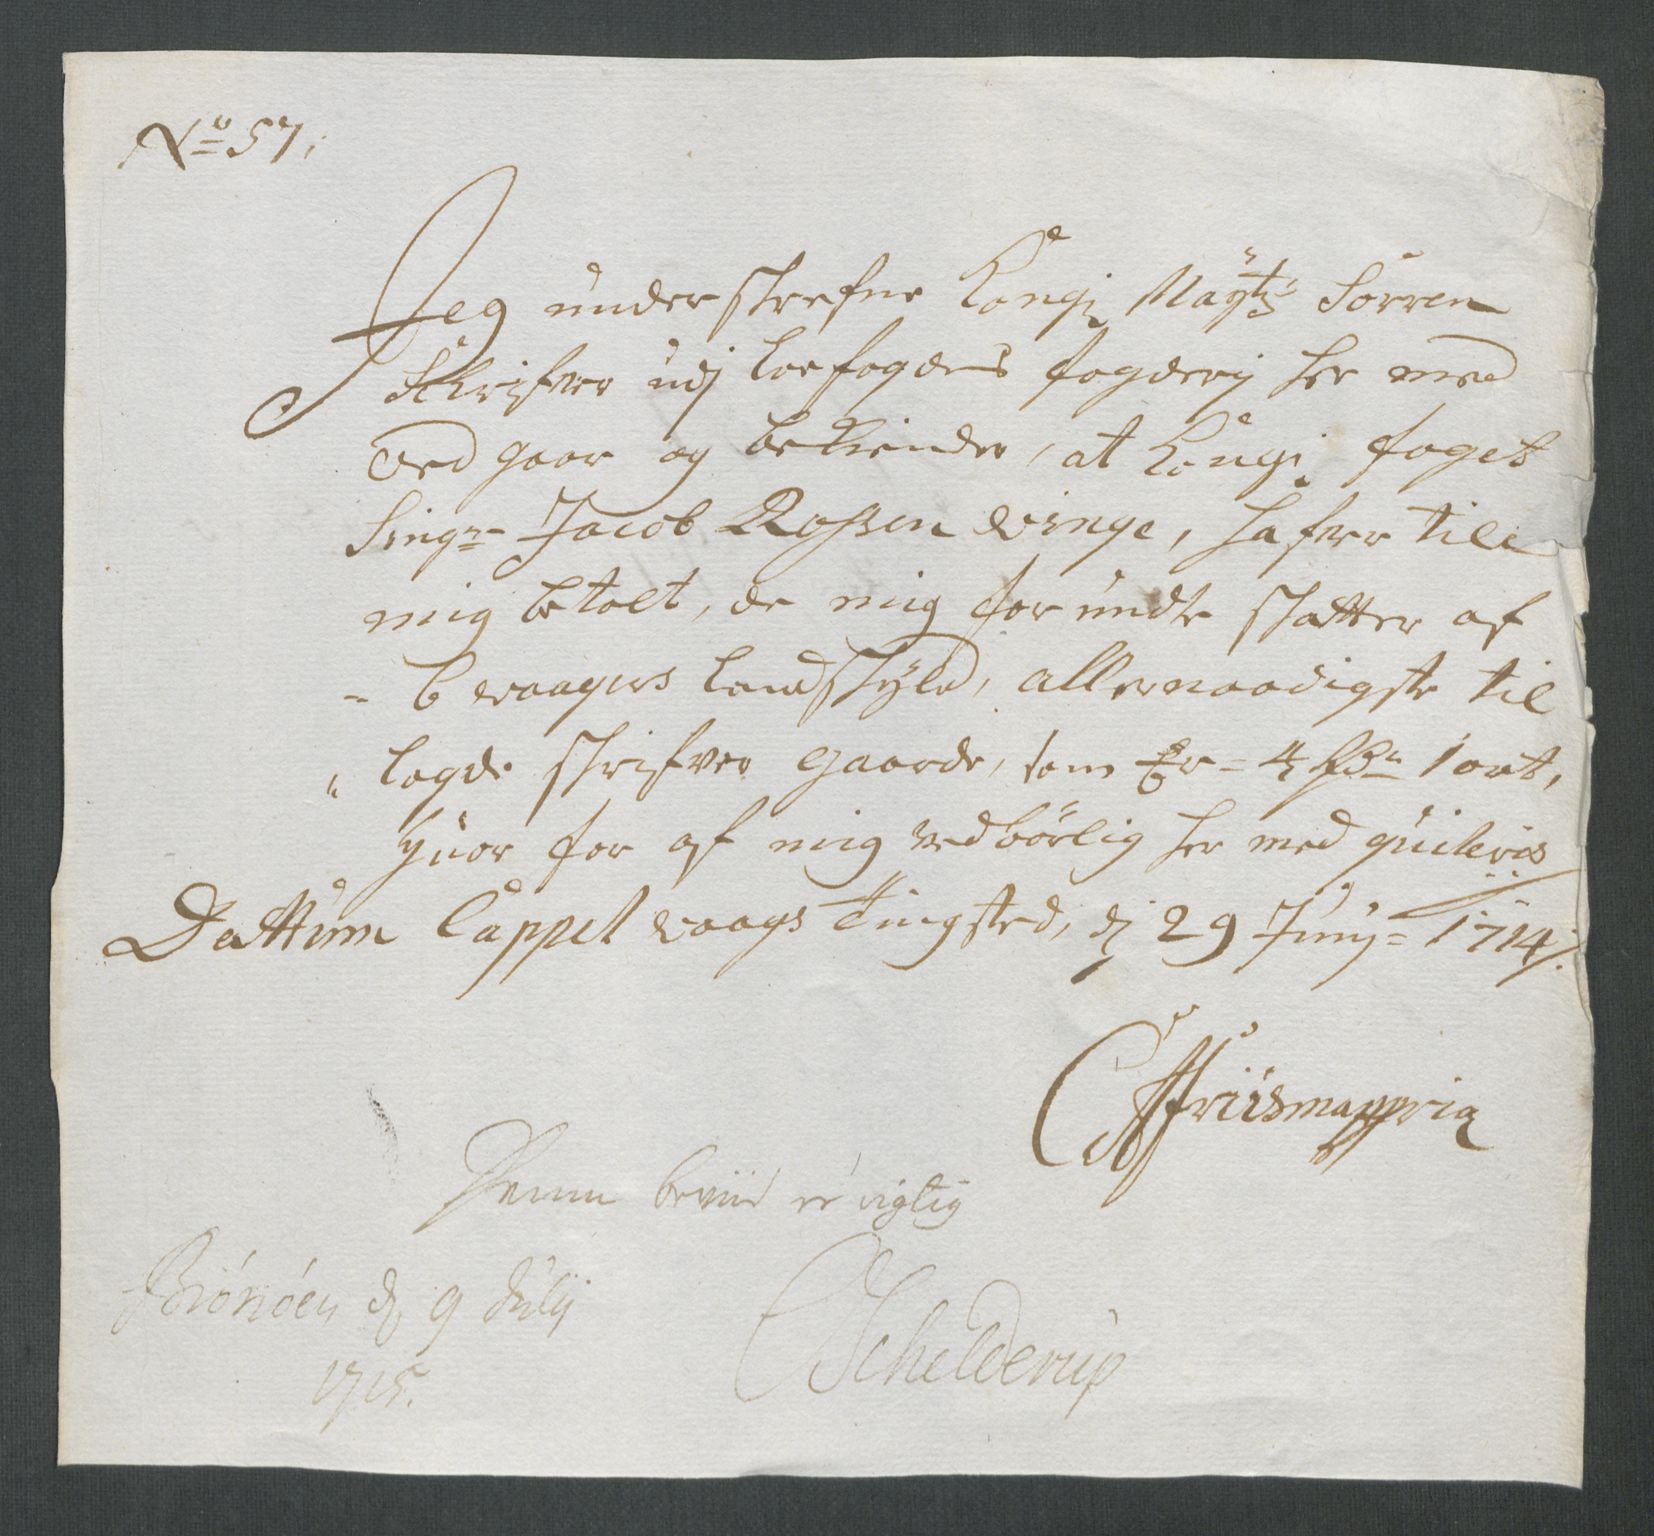 No 57,
Jeg underskrefne Kongl. Maytz Sorren
Skrifver udj Loefogdens fogderj her med
Ved gaar og bekiender, at Kongl. foget
Singr Jacob Rossen winge, hafver till
mig betalt, de mig forundte skatter af
- 6 waagers landskyld, allernaadigste til
" lagde skrifver gaarde, som Er = 4 Rdr 1 ort,
huor for af mig vedbörlig her med quiteris
Dattum Cappel waags tingsted, dj 29 Junj = 1714 /.
CFriismappria
Denne beviis er rigtig
Brönöen d 9 Julij
1715.
Schelderup